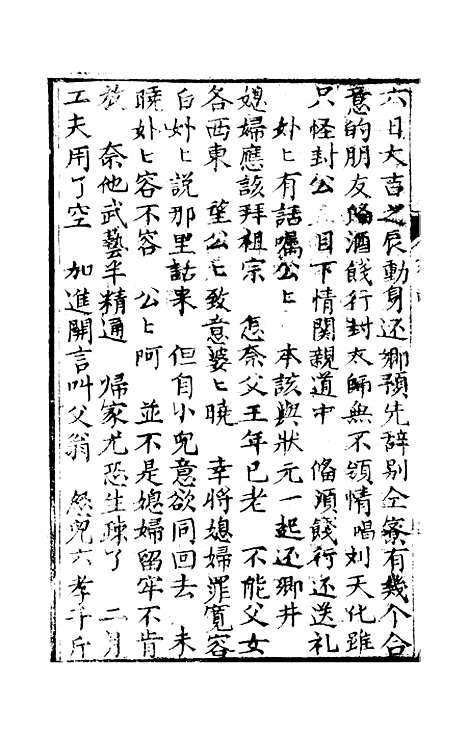 六日大吉之辰動身还鄉預先辞别仝寮有幾个合
意的朋友俻酒餞行封太師無不領情唱刘天化雖
只怪封公 目下情関親道中 俻須餞行还送礼
妣〻有話嘱公〻 本該與狀元一起还鄉井
媳婦應該拜祖宗 怎奈父王年已老 不能父女
各西東 望公〻致意婆〻曉 幸將媳婦罪寬容
白妣〻説那里話来 但自小兜意欲同回去 未
曉妣〻容不容 公〻阿 並不是媳婦留牢不肯
放 奈他武藝半精通 帰家尤恐生疎了 二月
工夫用了空 加進開言叫父翁 怨兜六孝千斤